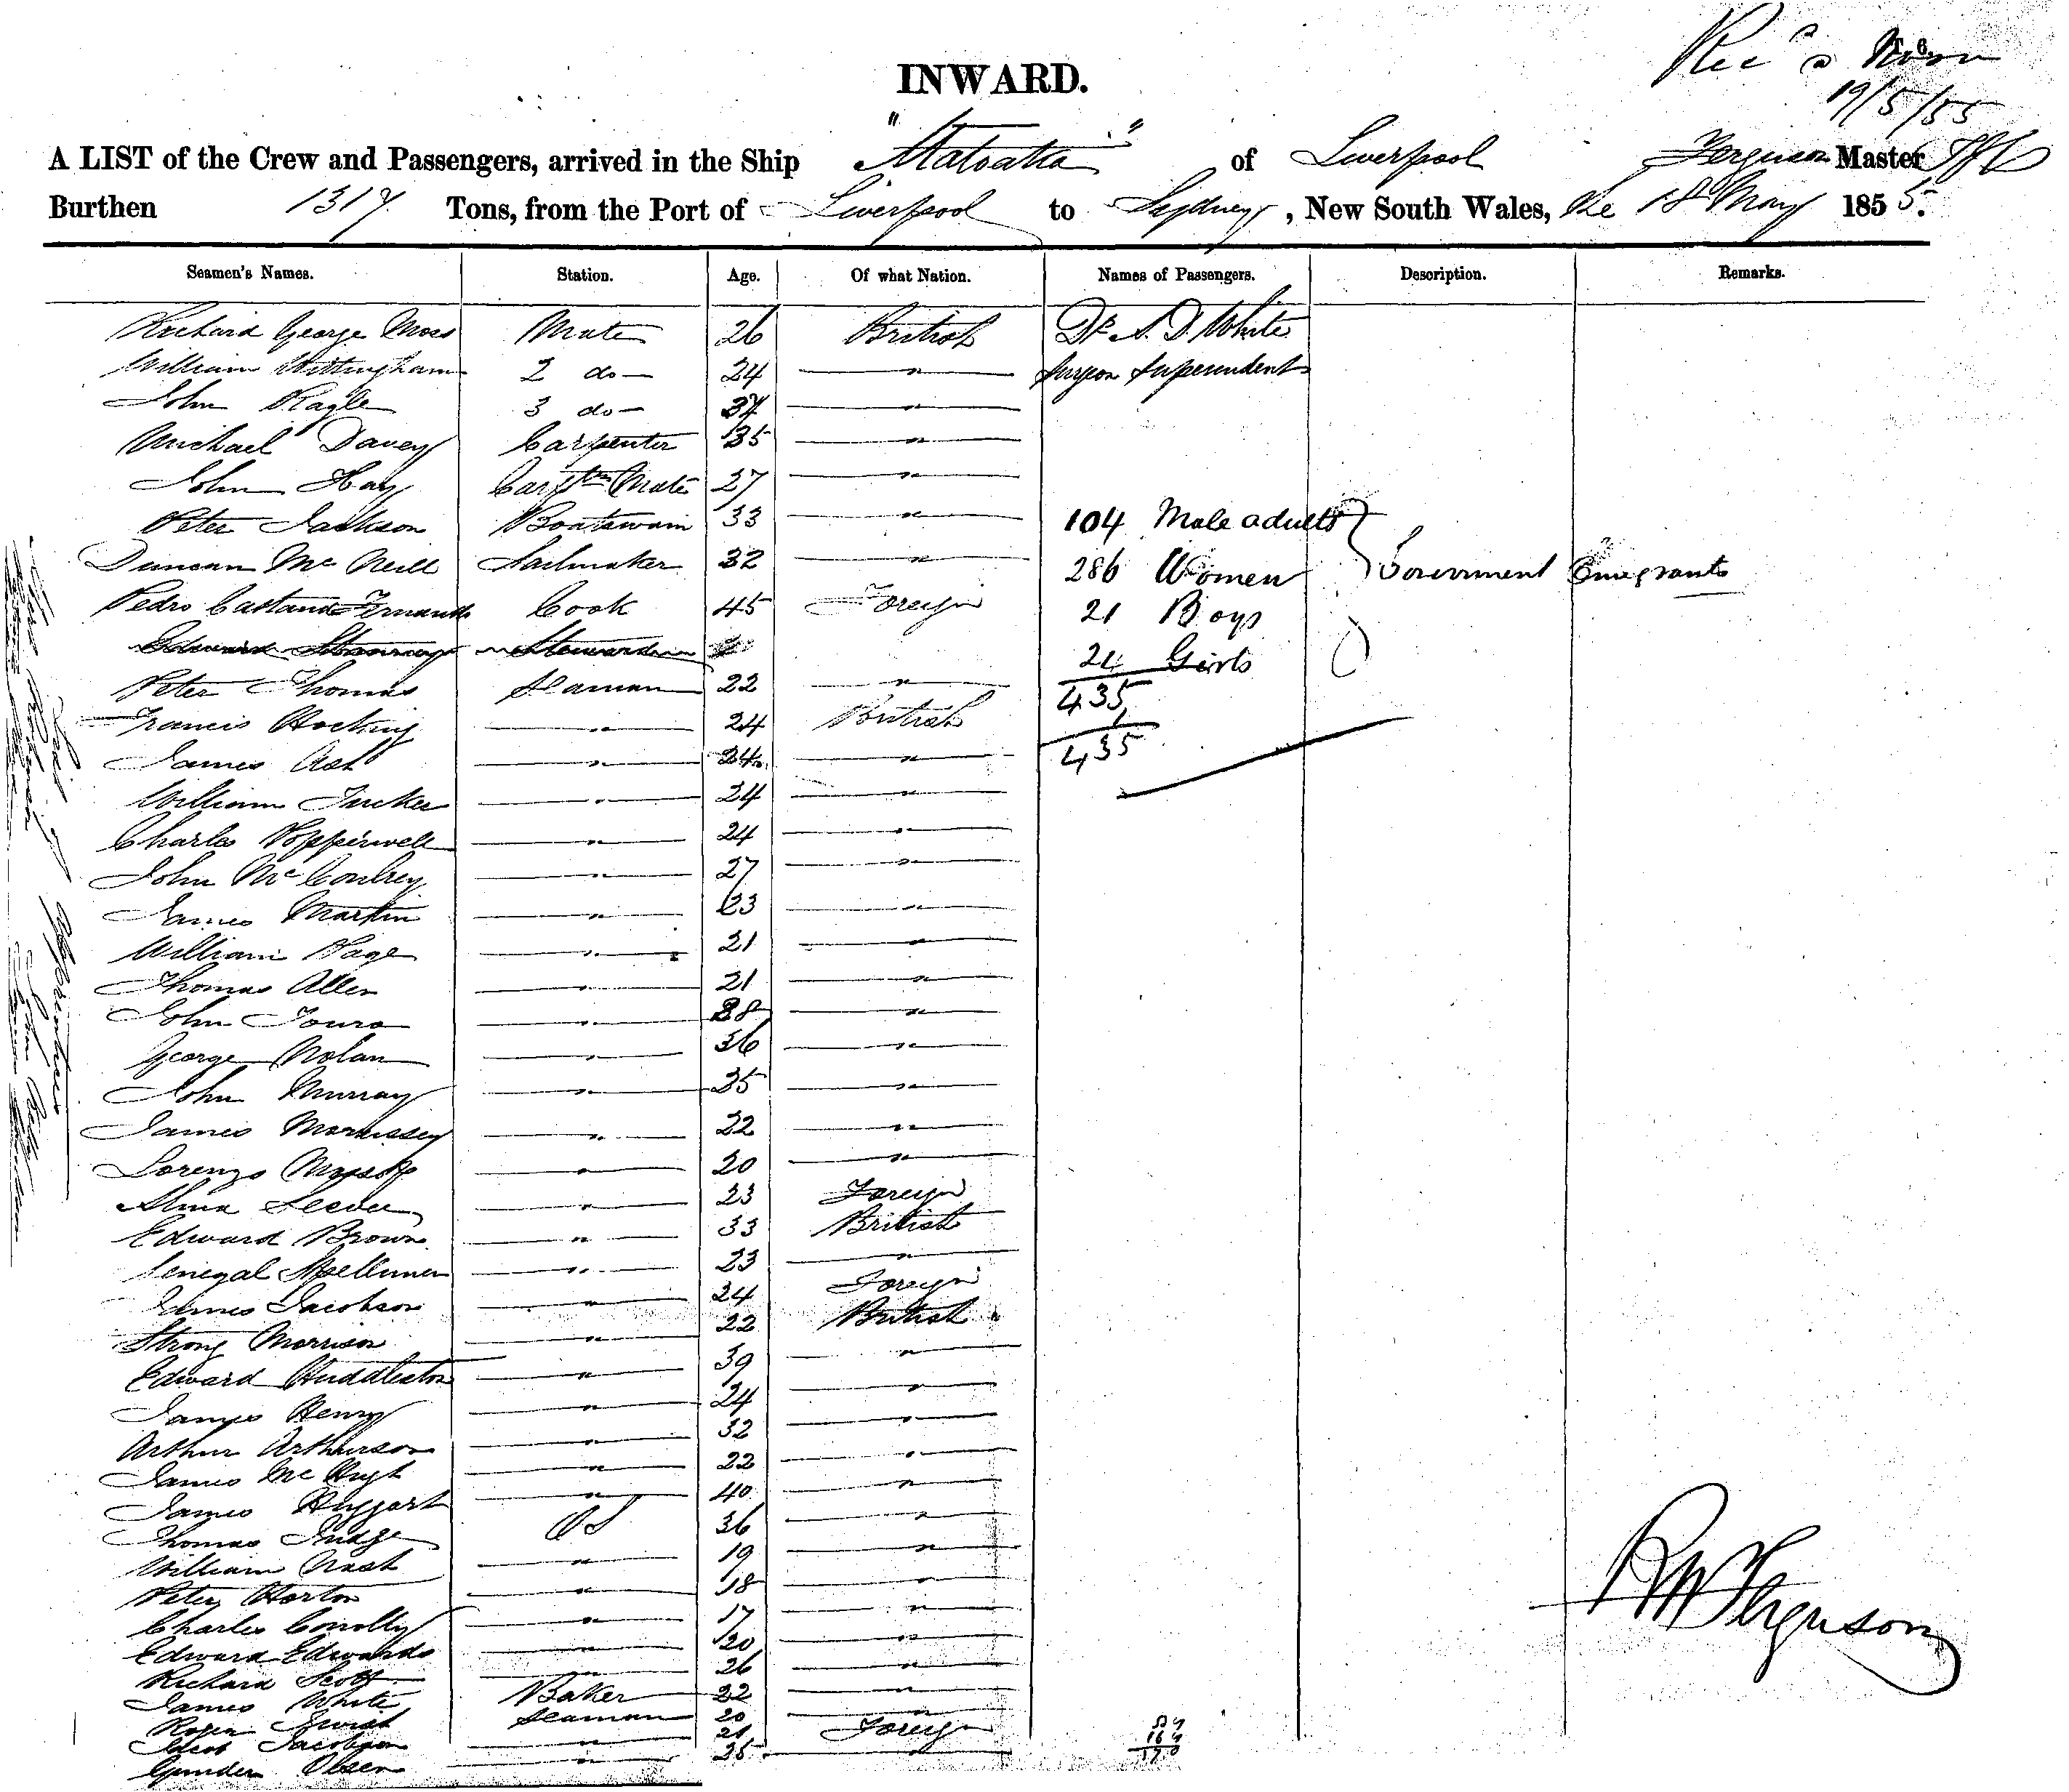 Rec'd Noon
19/5/55
INWARD.
A LIST of the Crew and Passengers, arrived in the Ship "Matoaka" of Liverpool Ferguson Master
Burthen 1317 Tons, from the Port of Liverpool to Sydney, New South Wales, the 18 May 1855.
Seamen's Names. Station. Age. Of what Nation. Names of Passengers. Description. Remarks.
Richard George Moss Mate 26 British Dr A. D. White
William Whittingham 2 do 24 " Surgeon Superendent
John Kagle 3 do 37 "
Michael Davey Carpenter 35 "
John Hay Carptrs Mate 27 "
Peter Jackson Boatswain 33 " 104 Male adults
Duncan Mc Neill Sailmaker 32 " 286 Women Government Emigrants
Pedro Fernando Cook 45 Foreign 21 Boys
Edward Steward 24 Girls
Peter Thomas Seaman 22 " 435
Francis Hocking " 24 British
James Ash " 24 " 435
William Tucker " 24 "
Charles Popperwell " 24 "
John Mc " 27 "
James Martin " 23 "
William Page " 21 "
Thomas Allen " 21 "
John " 28 "
George Nolan " 36 "
John Murray " 35 "
James Morrissey " 22 "
Lorenzo " 20 "
" 23 Foreign
Edward Brown " 33 British
" 23 "
James Jacobson " 24 Foreign
Strong Morrison " 22 British
Edward Huddleston " 39 "
James Henry " 24 "
Arthur Arthurson " 32 "
James Mc Hugh " 22 "
James Huggart " 40 "
Thomas Judge OS 36 "
William Nash " 19 "
Peter Horton " 18 "
Charles Conolly " 17 "
Edward Edwards " 20 "
Richard Scott " 26 "
James White Baker 22 "
Seaman 20 "
Jacobson " 21 Foreign
Gunder Olsen " 35
R M Ferguson